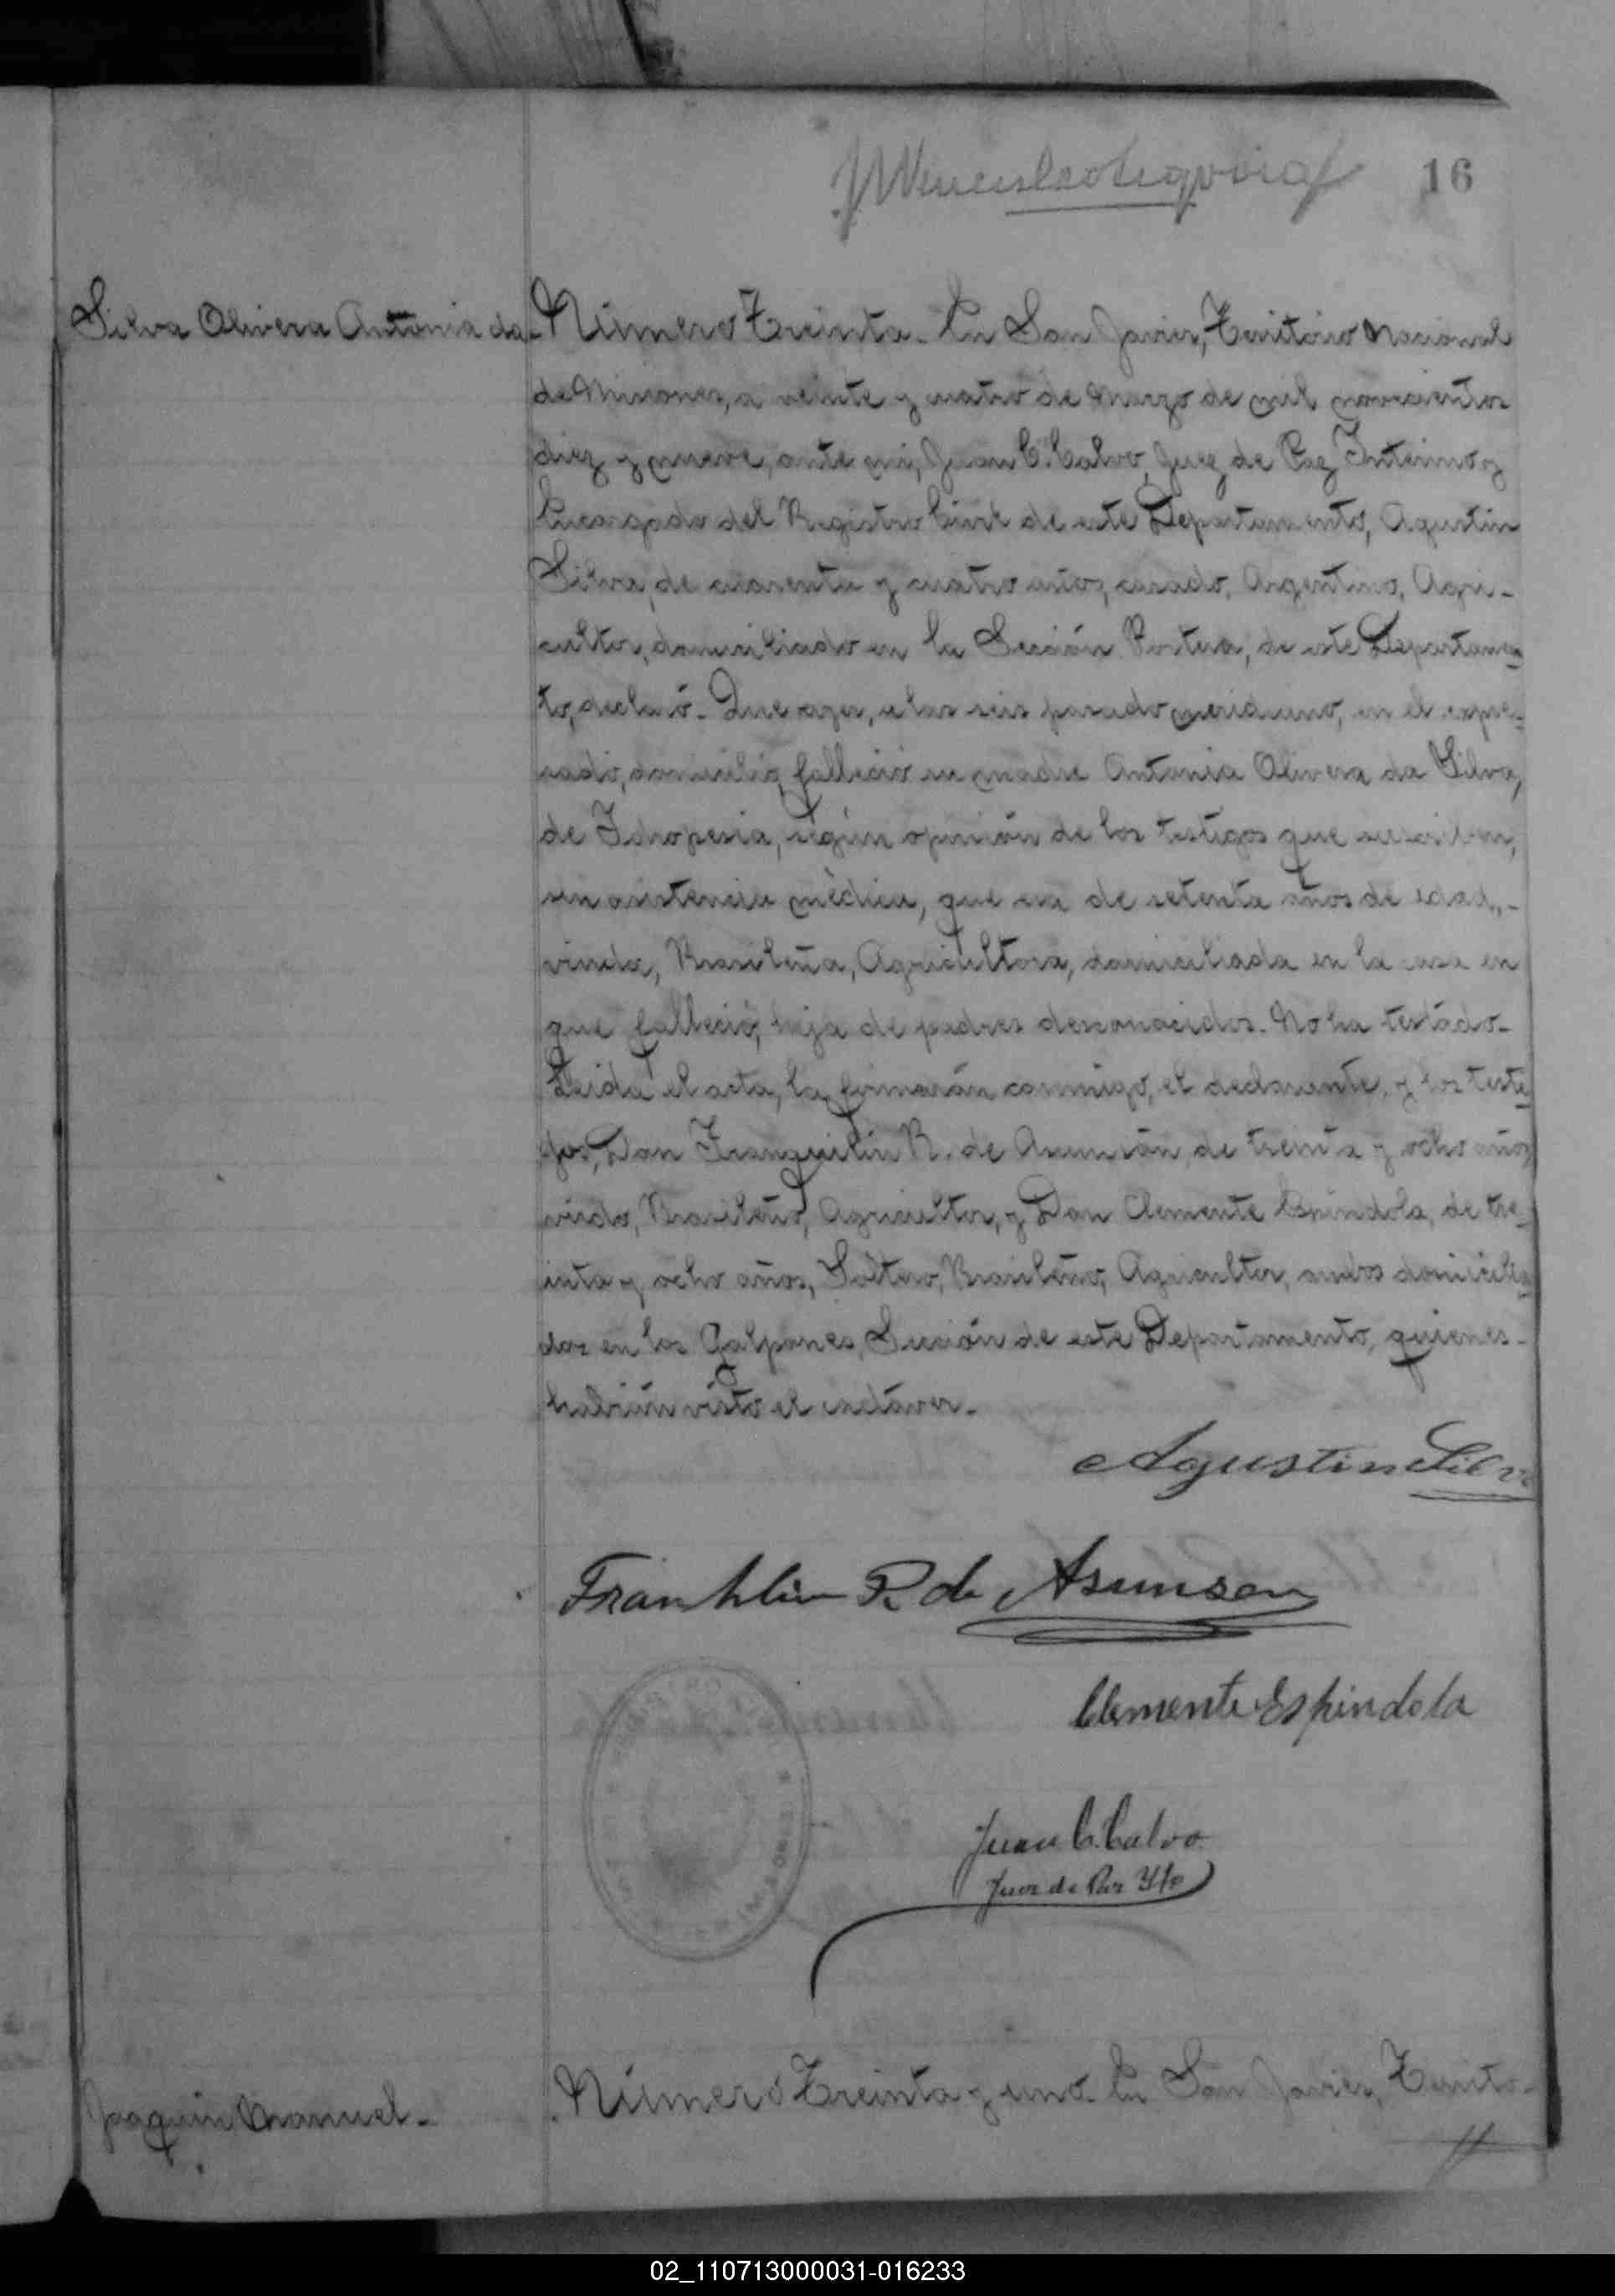 16
Silva Olivera Antonia da
Número Treinta. En San Javier, Territorio Nacional
de Misiones, a veinte y cuatro de Marzo de mil novecientos
diez y nueve, ante mi, Juan C. Calvo, Juez de Paz Interino y
Encargado del Registro Civil de este Departamento, Agustin
Silva, de cuarenta y cuatro años, casado, Argentino, Agri-
cultor, domiciliado en la Sección Portera, de este Departamen
to, declaró. Que ayer, a las seis pasado meridiano, en el expre-
sado, domicilio, falleció su madre Antonia Olivera da Silva,
de Idropesia, según opinión de los testigos que suscriben,
sin asistencia médica, que era de setenta años de edad,-
viuda, Brasileña, Agricultora, domiciliada en la casa en
que falleció, hija de padres desconocidos. No ha testado-
Leida el acta, la firmarón conmigo, el declarante, y los testi
gos, Don Franquilin R. de Asunsión, de treinta y ocho años
viudo, Brasileño, Agricultor, y Don Clemente Espindola, de tre-
inta y ocho años, Soltero, Brasileño, Agricultor, ambos domicilia
dos en los Galpones, Sección de este Departamento, quienes-
habián visto el cadáver.
Agustin Silva
Franklin R. de Asunson
Clemente Espindola
Juan C. Calvo
Juez de Paz Yto
Joaquin Manuel-
Número Treinta y uno. En San Javier, Territo-
02_110713000031-016233